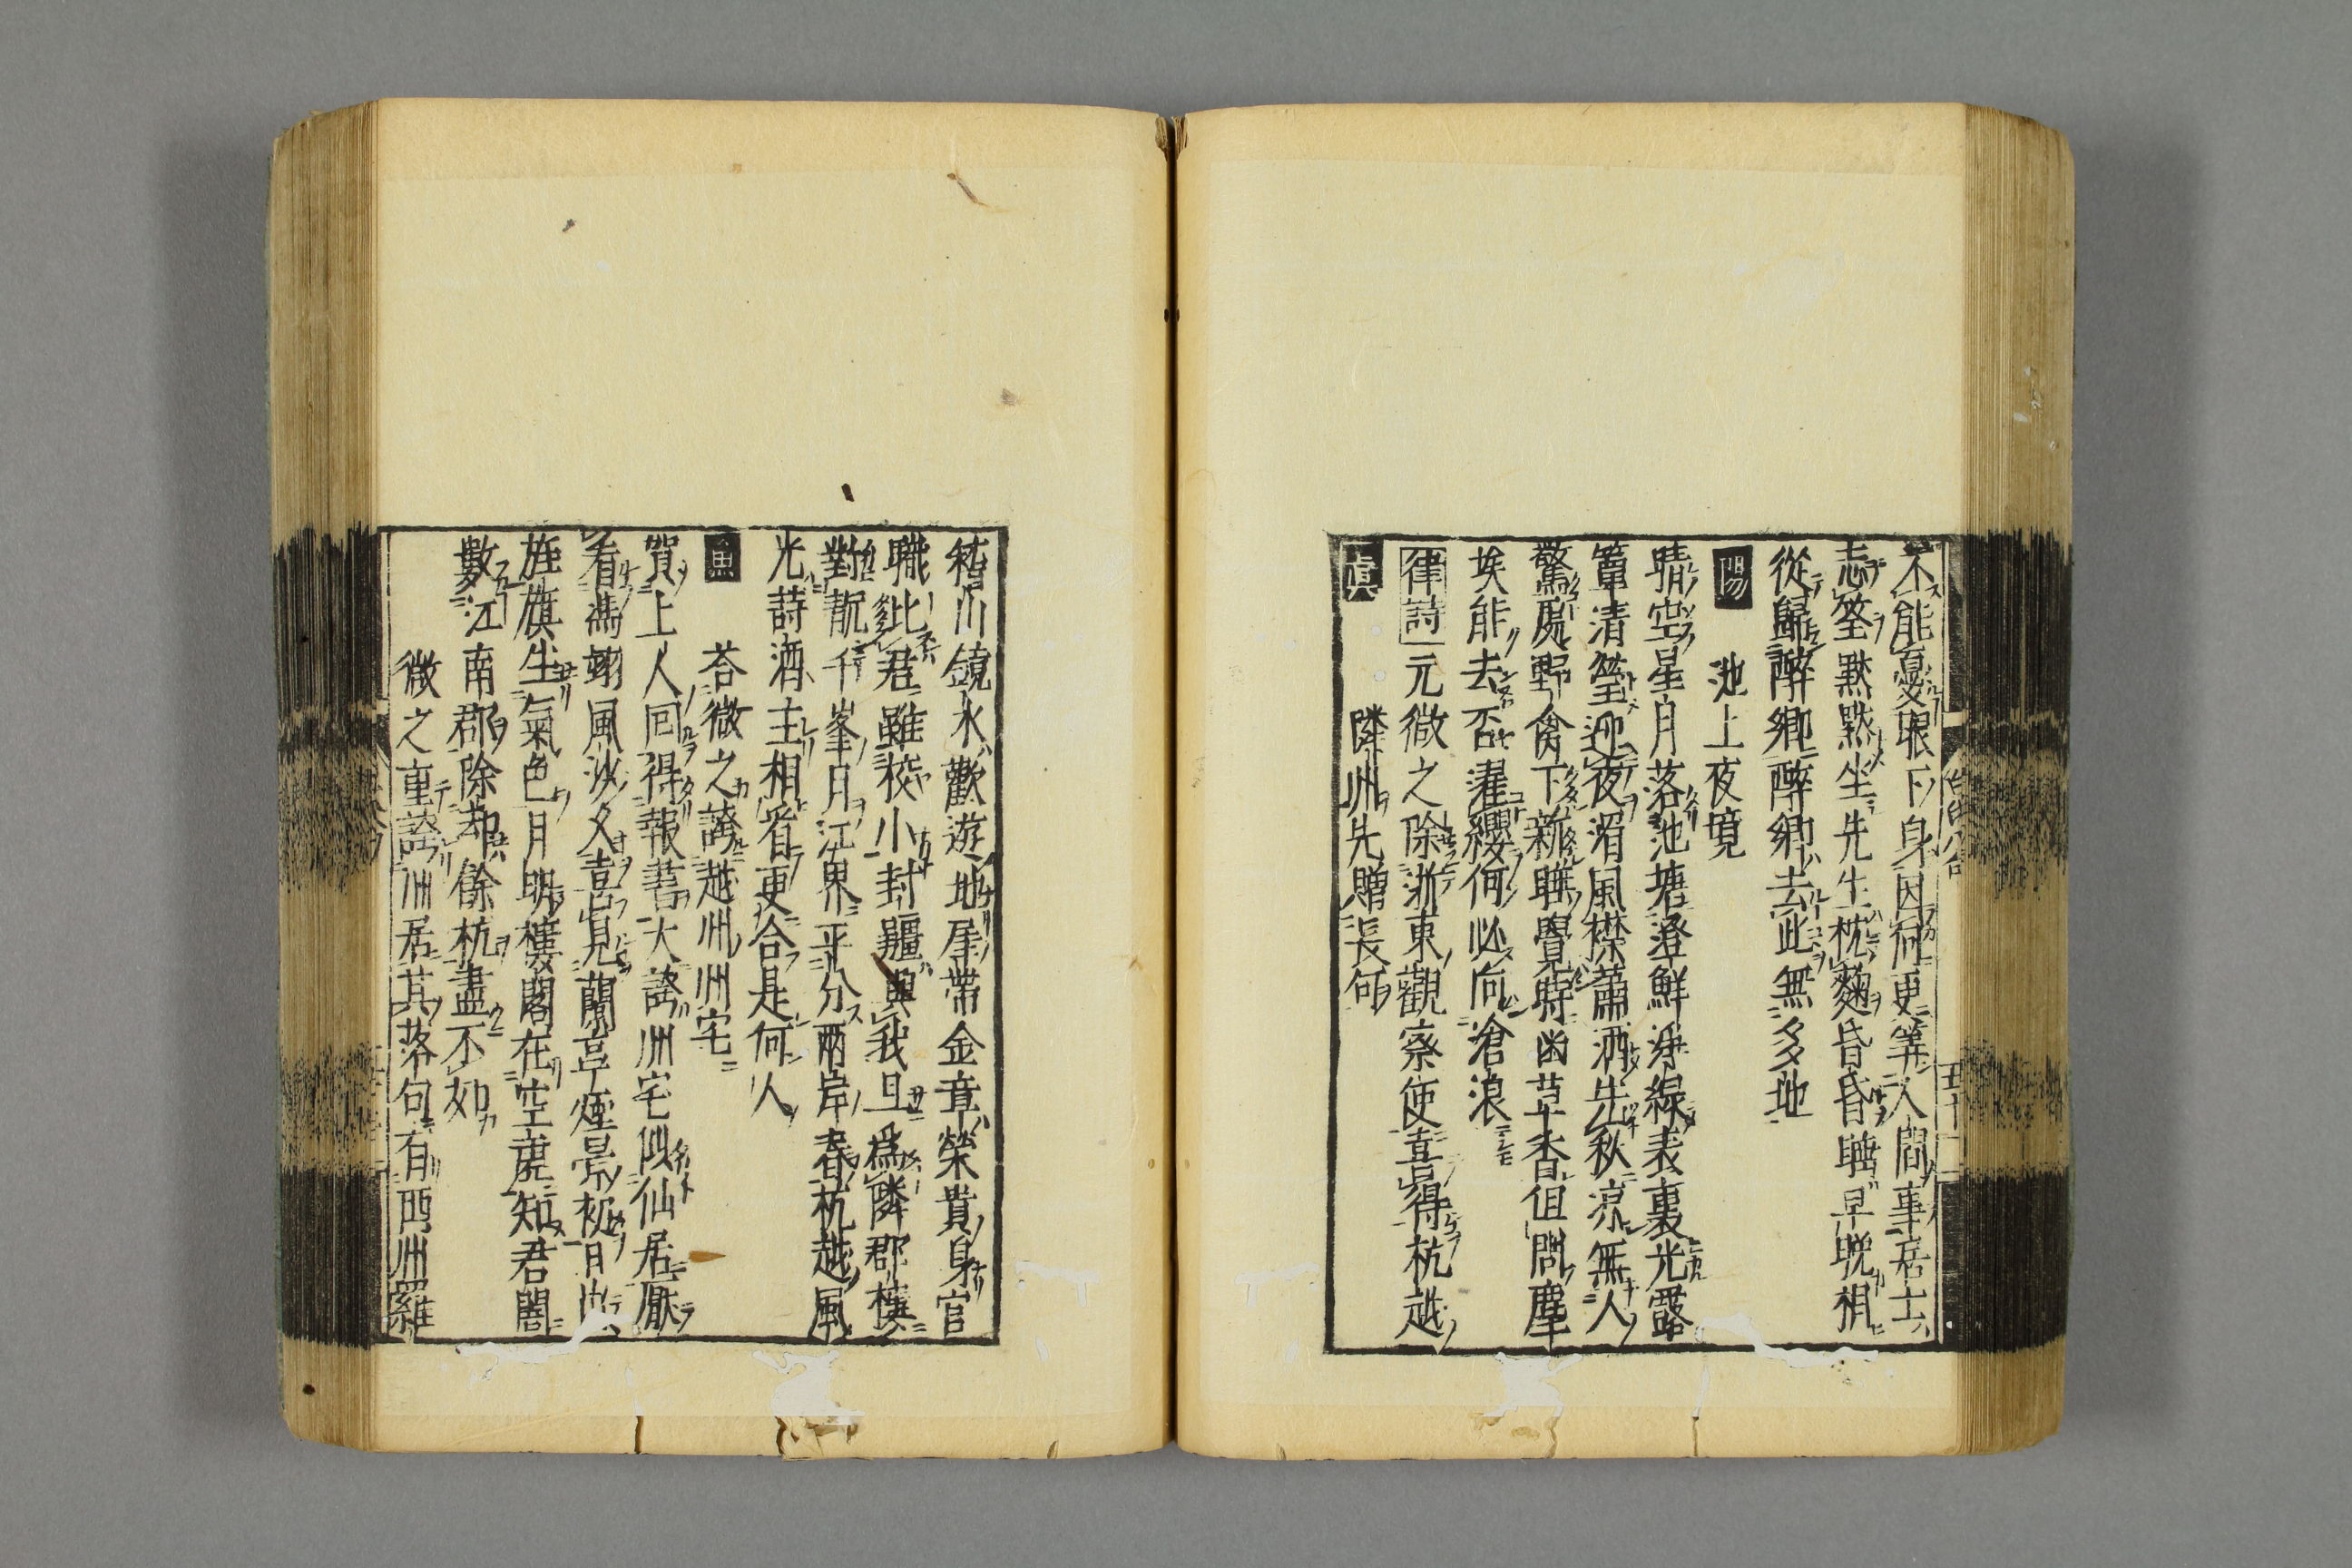 不能憂眼下身因何更筭人間事居士
忘筌黙黙坐先生枕麴昏昏睡早晩相
從歸醉郷醉郷去此無多地
陽　池上夜境
晴空星月落池塘澄鮮淨緑表裏光露
簟清瑩迎夜滑風襟蕭洒先秋凉無人
驚處野禽下新睡覺時幽草香但問塵
埃能去否濯纓何必向滄浪
律詩　元微之除浙東觀察使喜得杭越
眞　隣州先贈長句
稽山鏡水歡遊地犀帶金章榮貴身官
職比君雖校小封疆與我且爲隣郡樓
對翫千峯月江界平分兩岸春杭越風
光詩酒主相看更合是何人
魚　荅微之誇越州州宅
賀上人回得報書大誇州宅似仙居厭
看馮翊風沙久喜見蘭亭煙景初日出
旌旗生氣色月明樓閣在空虚知君闇
數江南郡除却餘杭盡不如
微之重誇州居其落句有西州羅